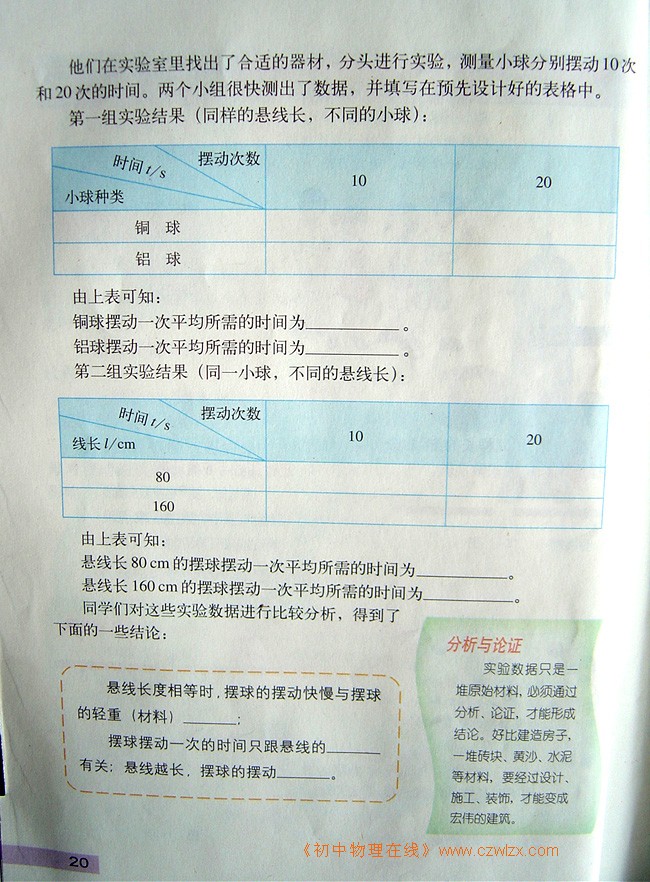 他们在实验室里找出了合适的器材，分头进行实验，测量小球分别摆动10次
和20次的时间。两个小组很快测出了数据，并填写在预先设计好的表格中。
第一组实验结果（同样的悬线长，不同的小球）：
时间t/s 摆动次数
10 20
小球种类
铜 球
铝 球
由上表可知：
铜球摆动一次平均所需的时间为__________。
铝球摆动一次平均所需的时间为__________。
第二组实验结果（同一小球，不同的悬线长）：
时间t/s 摆动次数
10 20
线长l/cm
80
160
由上表可知：
悬线长80 cm的摆球摆动一次平均所需的时间为__________。
悬线长160 cm的摆球摆动一次平均所需的时间为__________。
同学们对这些实验数据进行比较分析，得到了
下面的一些结论：
悬线长度相等时，摆球的摆动快慢与摆球
的轻重（材料）______；
摆球摆动一次的时间只跟悬线的______
有关；悬线越长，摆球的摆动______。
分析与论证
实验数据只是一
堆原始材料，必须通过
分析、论证，才能形成
结论。好比建造房子，
一堆砖块、黄沙、水泥
等材料，要经过设计、
施工、装饰，才能变成
宏伟的建筑。
20
《初中物理在线》www.czwlzx.com